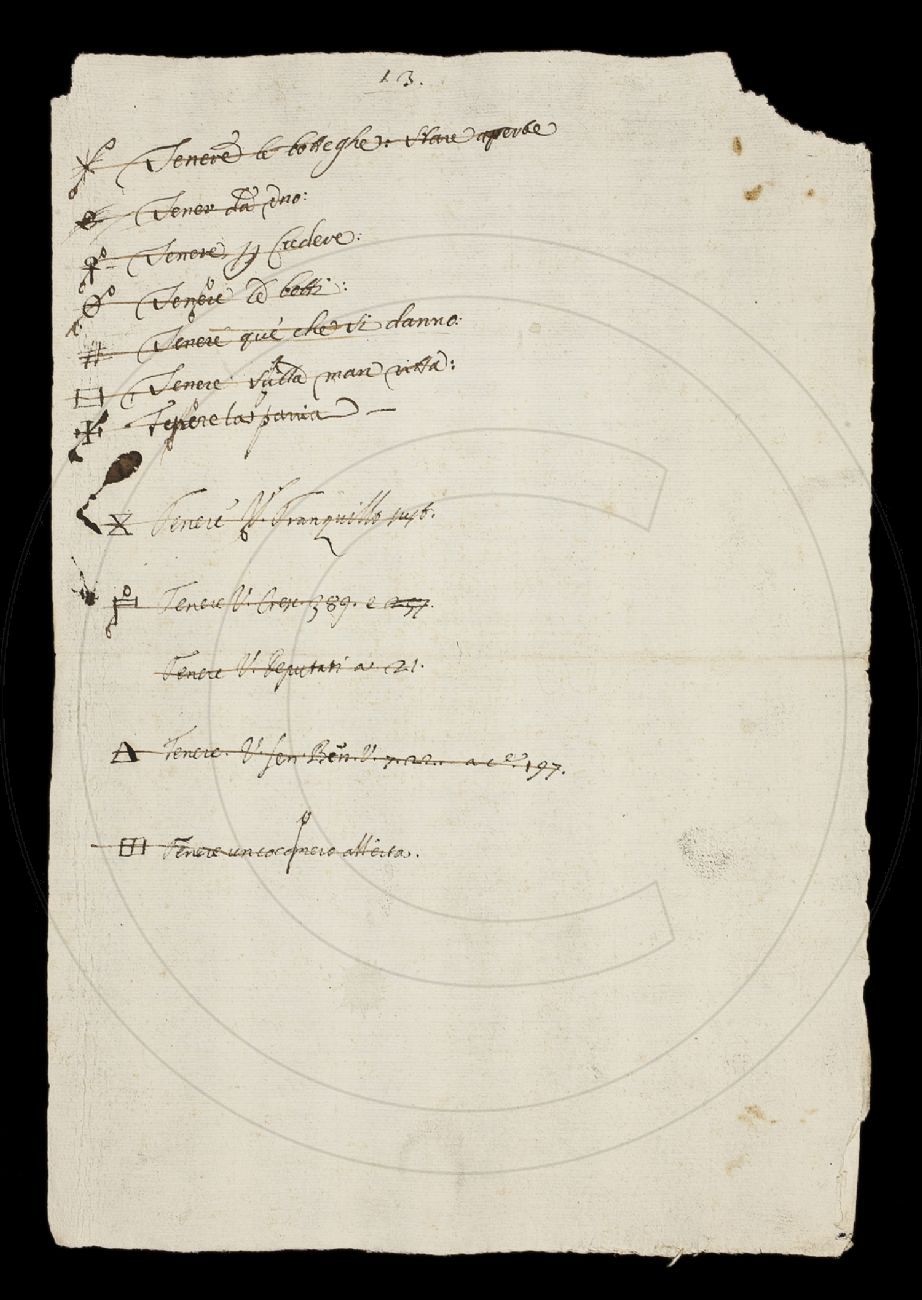 13.
Tenere le botteghe: stare aperte
Tener da dno:
Tenere p Credere:
Tenere le botti:
Tenere que che si danno:
Tenere sulla man ritta:
Tenere la pania
Tenere V. Tranquillo
Tenere V. Cresc. 389. e 257.
Tenere V. Deputati a 21.
Tenere. V. sen. Ben. V. 7. 22. a c. 197.
Tenere un cocomero all'erta.